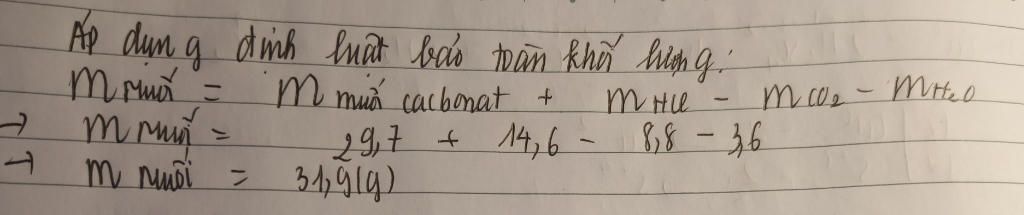 Áp dụng định luật bảo toàn khối lượng:
m muối = m muối cacbonat + m HCl - m CO2 - m H2O
→ m muối = 29,7 + 14,6 - 8,8 - 3,6
→ m muối = 31,9(g)